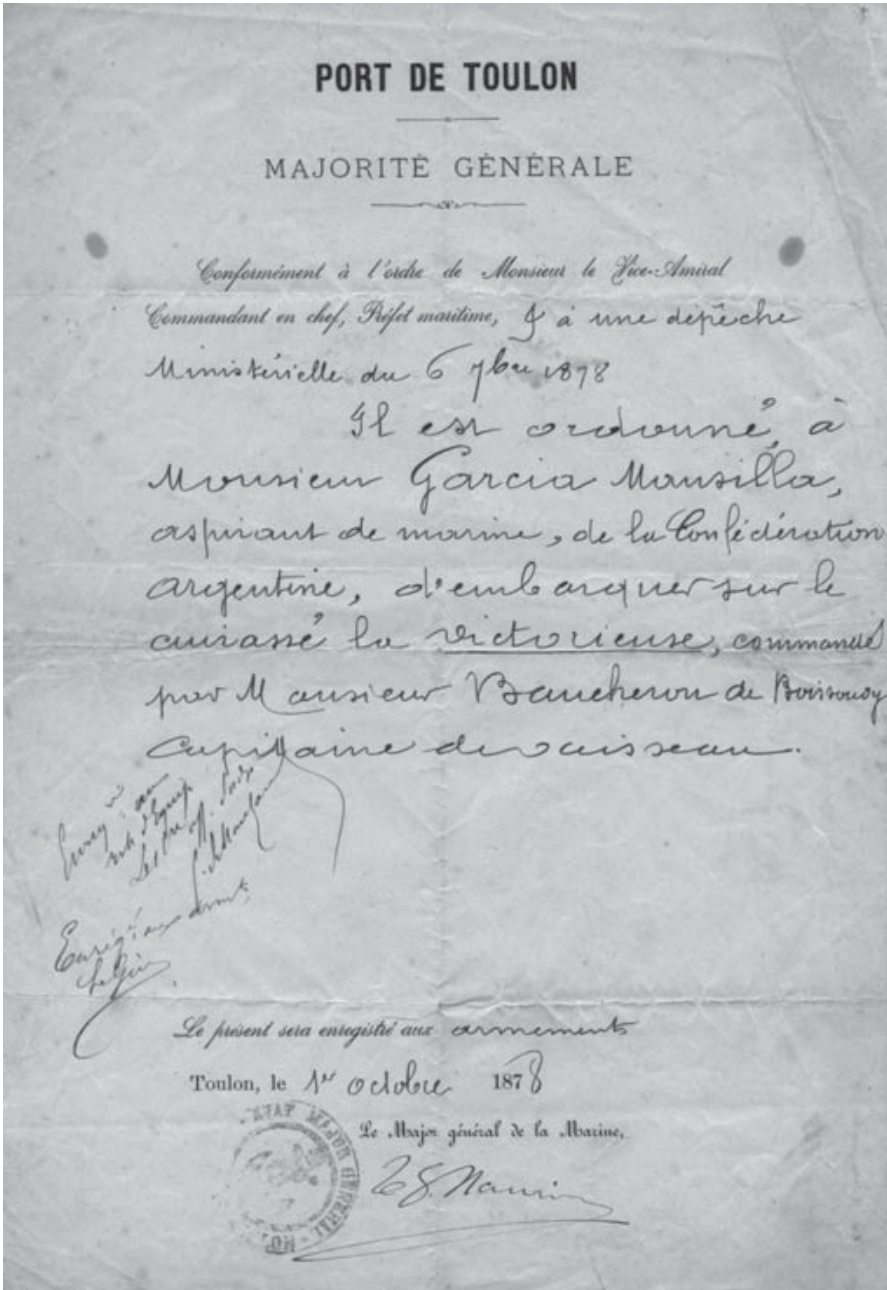 PORT DE TOULON
MAJORITÉ GÉNÉRALE
Conformément à l'ordre de Monsieur le Vice-Amiral
Commandant en chef, Préfet maritime, & à une dépêche
Ministérielle du 6 7bre 1878
Il est ordonné à
Monsieur Garcia Mansilla,
aspirant de marine, de la Confédération
Argentine, d'embarquer sur le
cuirassé la Victorieuse, commandé
par Monsieur Baucheron de Boissoudy
Capitaine de vaisseau.
Le présent sera enregistré aux armements
Toulon, le 1er octobre 1878
Le Major général de la Marine,
ETAT MAJOR GENERAL